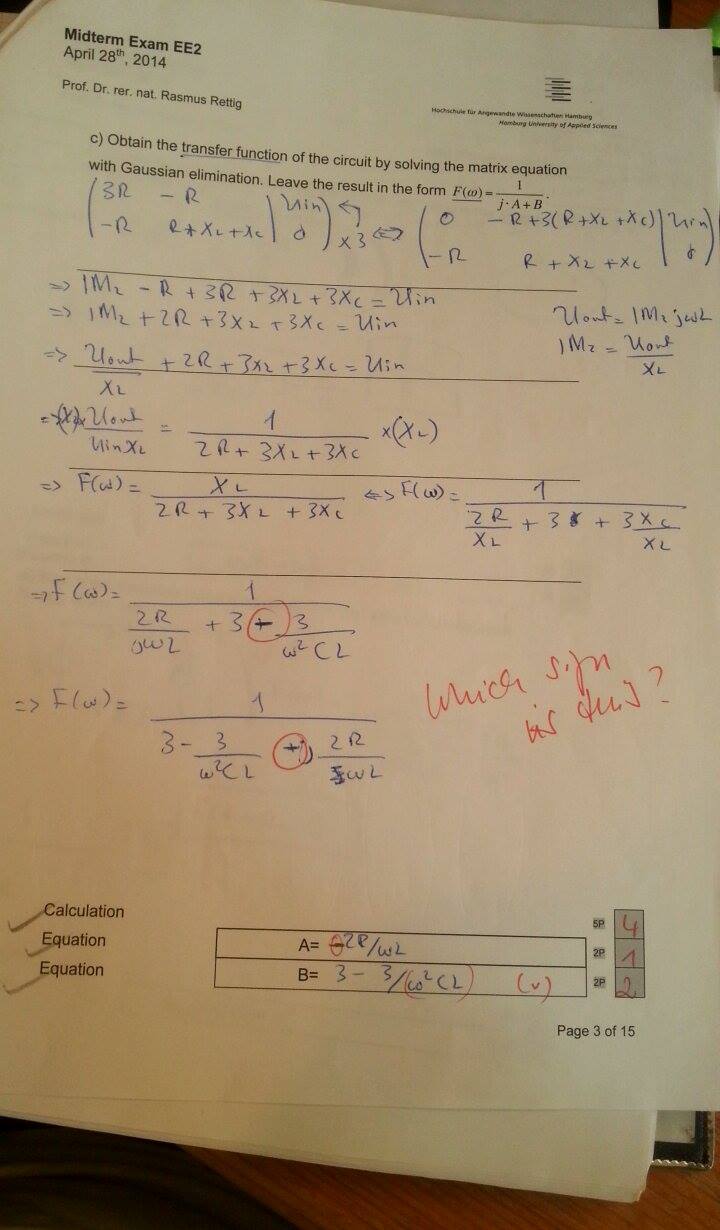 Midterm Exam EE2
April 28th, 2014
Prof. Dr. rer. nat. Rasmus Rettig
Hochschule für Angewandte Wissenschaften Hamburg
Hamburg University of Applied Sciences
c) Obtain the transfer function of the circuit by solving the matrix equation
with Gaussian elimination. Leave the result in the form F(ω) = 1 / (j·A+B).
(3R  -R | Uin) ↰ (0  -R+3(R+XL+XC) | Uin)
(-R  R+XL+XC | 0) x3 <=> (-R  R+XL+XC | 0)
=> IM2 -R +3R +3XL +3XC = Uin
=> IM2 +2R +3XL +3XC = Uin
Uout = IM2 jωL
=> Uout/XL + 2R + 3XL + 3XC = Uin
IM2 = Uout/XL
Uout/UinXL = 1/(2R + 3XL + 3XC) x(XL)
=> F(ω) = XL/(2R + 3XL + 3XC) <=> F(ω) = 1/(2R/XL + 3 + 3XC/XL)
=> F(ω) = 1/(2R/jωL + 3 - 3/ω²CL)
Which sign
is this?
=> F(ω) = 1/(3 - 3/ω²CL + j 2R/ωL)
Calculation 5P 4
Equation A= -2R/ωL 2P 1
Equation B= 3 - 3/(ω²CL) (v) 2P 2
Page 3 of 15